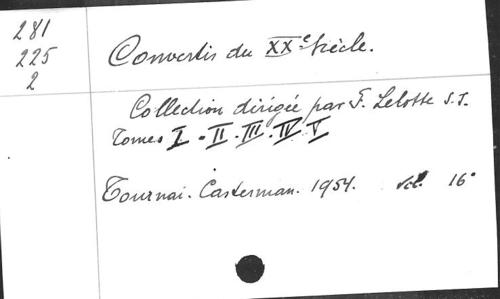 281
225
2
Convertis du XXe Siècle.
Collection dirigée par F. Lelotte S.J.
Tomes I - II - III - IV - V
Tournai. Casterman. 1954. vol. 16°